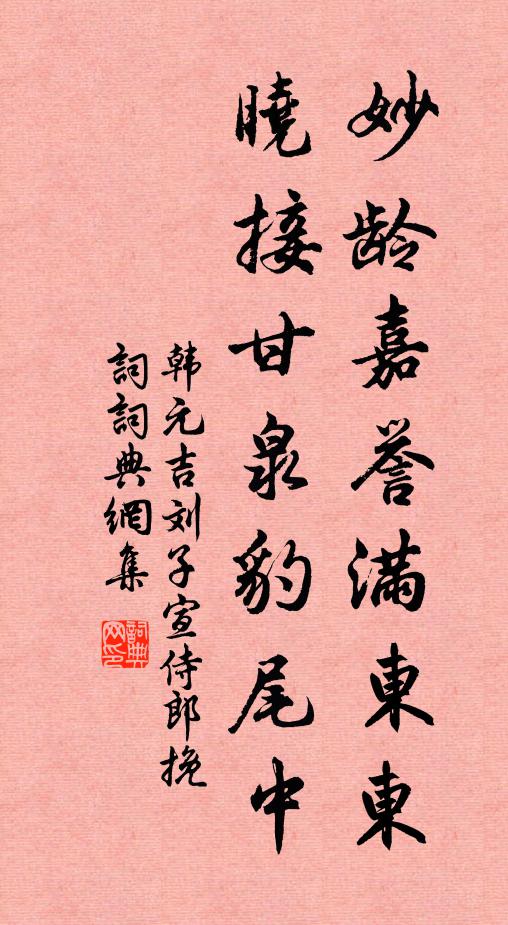 妙龄嘉誉满東東
曉接甘泉豹尾中
韩元吉刘子宣侍郎挽
詞詞典網集
詞典网印